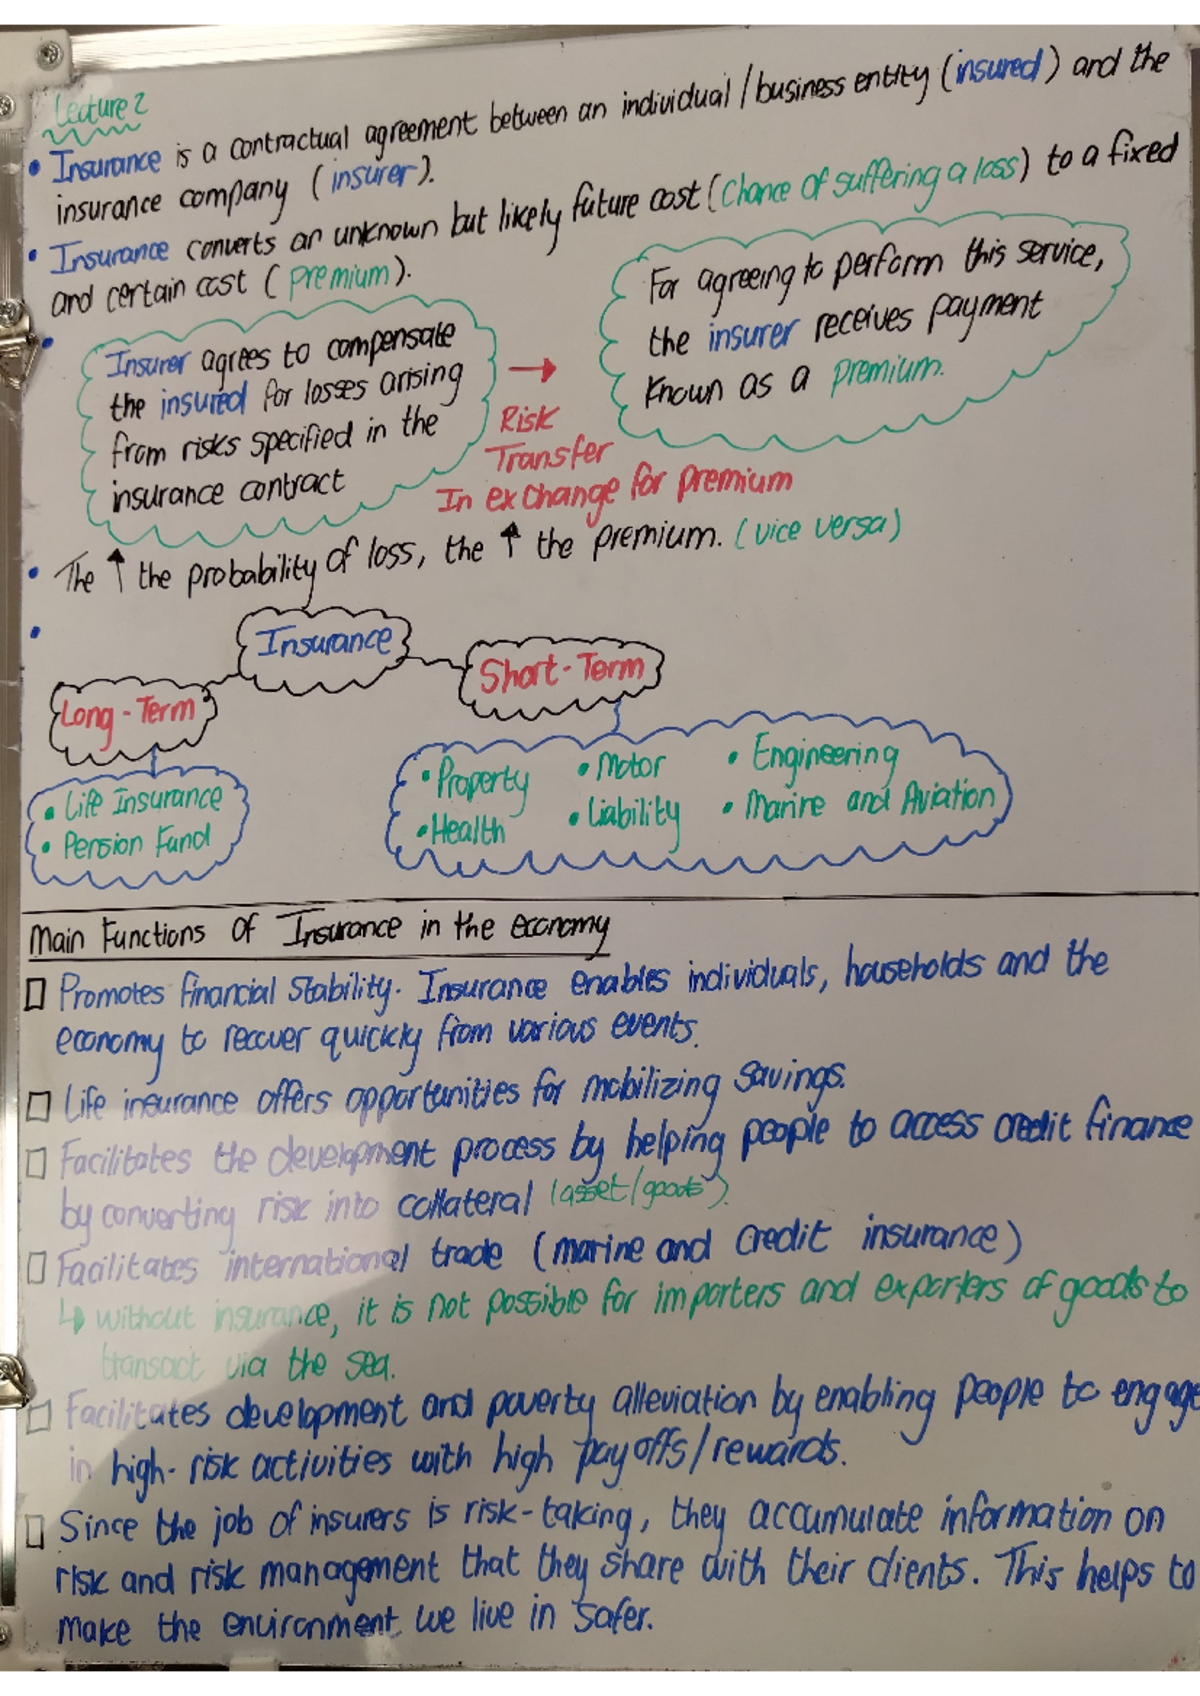 Lecture 2
• Insurance is a contractual agreement between an individual / business entity (insured) and the
insurance company (insurer).
• Insurance converts an unknown but likely future cost (chance of suffering a loss) to a fixed
and certain cost (premium).
• Insurer agrees to compensate
the insured for losses arising
from risks specified in the
insurance contract
→
Risk
Transfer
In exchange for premium
For agreeing to perform this service,
the insurer receives payment
known as a premium.
• The ↑ the probability of loss, the ↑ the premium. (vice versa)
• Insurance
Long-Term
Short-Term
• Life Insurance
• Pension Fund
• Property • Motor • Engineering
• Health • Liability • Marine and Aviation
Main Functions Of Insurance in the economy
□ Promotes financial stability. Insurance enables individuals, households and the
economy to recover quickly from various events.
□ Life insurance offers opportunities for mobilizing savings.
□ Facilitates the development process by helping people to access credit finance
by converting risk into collateral (asset/goods).
□ Facilitates international trade (marine and credit insurance)
↳ without insurance, it is not possible for importers and exporters of goods to
transact via the sea.
□ Facilitates development and poverty alleviation by enabling people to engage
in high-risk activities with high payoffs/rewards.
□ Since the job of insurers is risk-taking, they accumulate information on
risk and risk management that they share with their clients. This helps to
make the environment we live in safer.